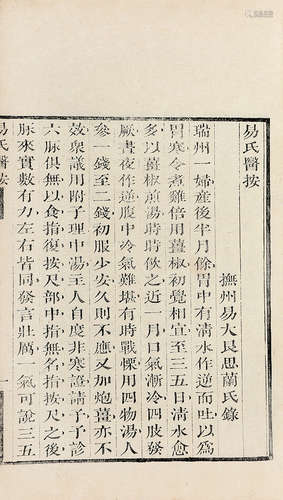 易氏醫按
撫州易大艮思蘭氏錄
瑞州一婦產後半月餘胃中有清水作逆而吐以為
胃寒令煮雞倍用薑椒初覺相宜至三五日清水愈
多以薑椒煎湯時時飲之近一月口氣漸冷四肢發
厥晝夜作逆腹中冷氣難堪有時戰慄用四物湯人
參一錢至二錢初服少安久則不應又加炮薑亦不
效衆議用附子理中湯主人自度非寒證請予予診
六脈俱無以食指復按尺部中指無名指按尺之後
脈來實數有力左右皆同發言壯厲　氣可說三五
易氏醫按
一